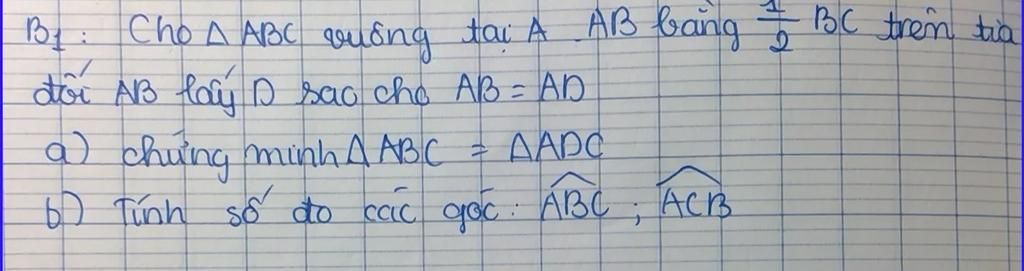 B1: Cho Δ ABC vuông tại A AB bằng 1/2 BC trên tia
đối AB lấy D sao cho AB = AD
a) chứng minh Δ ABC = ΔADC
b) Tính số đo các góc: \widehat{ABC} ; \widehat{ACB}